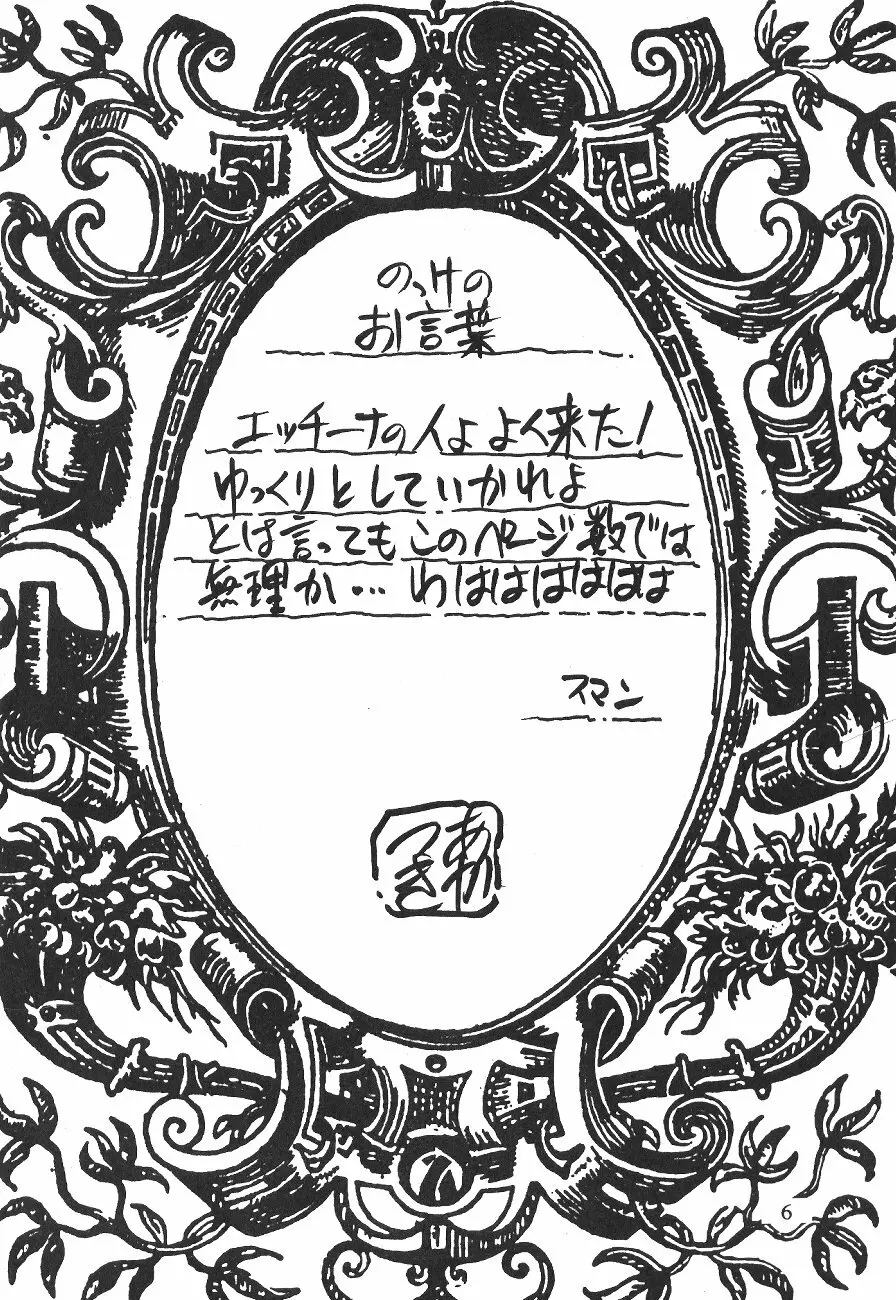 のっけの
お言葉
エッチーナの人よ よく来た!
ゆっくりとしていかれよ
とは言ってもこのページ数では
無理か… わはははははは
スマン
あか
つき
6